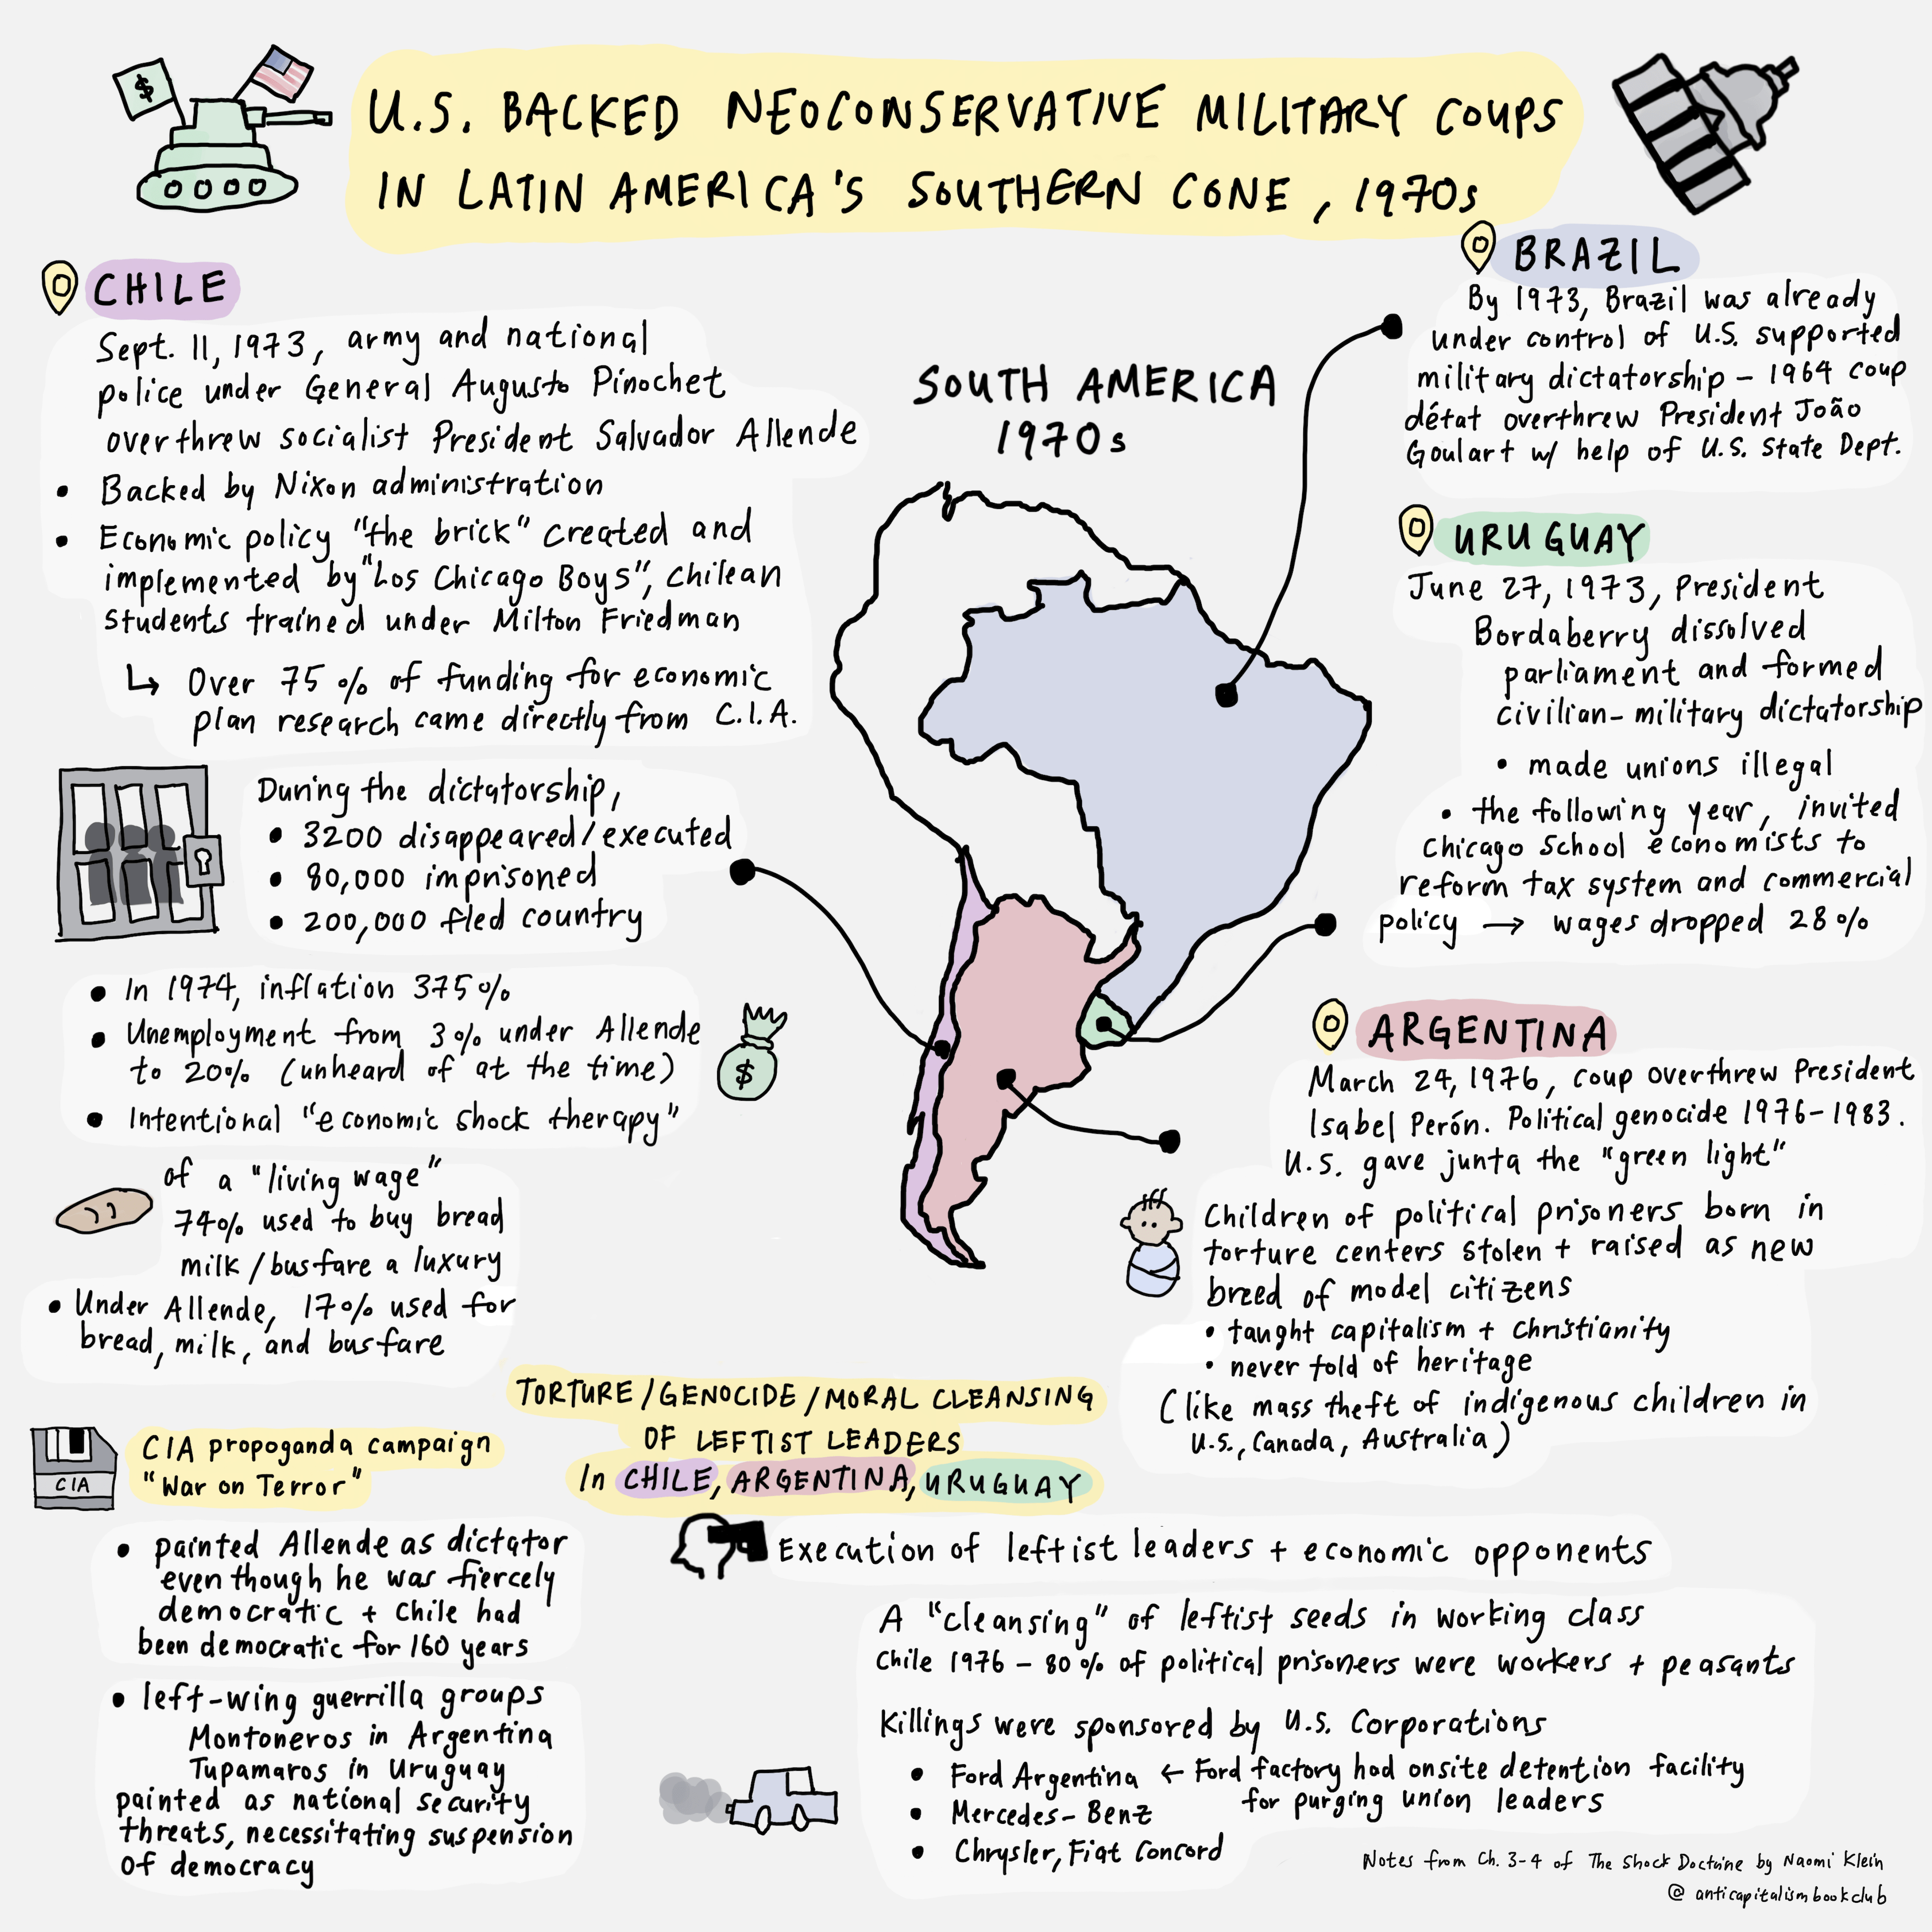 U.S. BACKED NEOCONSERVATIVE MILITARY COUPS
IN LATIN AMERICA'S SOUTHERN CONE, 1970s
$
CHILE
Sept. 11, 1973, army and national
police under General Augusto Pinochet
overthrew socialist President Salvador Allende
• Backed by Nixon administration
• Economic policy "the brick" created and
implemented by "Los Chicago Boys", Chilean
students trained under Milton Friedman
↳ Over 75% of funding for economic
plan research came directly from C.I.A.
During the dictatorship,
• 3200 disappeared/executed
• 80,000 imprisoned
• 200,000 fled country
• In 1974, inflation 375%
• Unemployment from 3% under Allende
to 20% (unheard of at the time)
• Intentional "economic shock therapy"
$
of a "living wage"
74% used to buy bread
milk/busfare a luxury
• Under Allende, 17% used for
bread, milk, and busfare
SOUTH AMERICA
1970s
BRAZIL
By 1973, Brazil was already
under control of U.S. supported
military dictatorship – 1964 coup
détat overthrew President João
Goulart w/ help of U.S. State Dept.
URUGUAY
June 27, 1973, President
Bordaberry dissolved
parliament and formed
civilian-military dictatorship
• made unions illegal
• the following year, invited
Chicago School economists to
reform tax system and commercial
policy → wages dropped 28%
ARGENTINA
March 24, 1976, coup overthrew President
Isabel Perón. Political genocide 1976-1983.
U.S. gave junta the "green light"
Children of political prisoners born in
torture centers stolen + raised as new
breed of model citizens
• taught capitalism + Christianity
• never told of heritage
(like mass theft of indigenous children in
U.S., Canada, Australia)
CIA
CIA propoganda campaign
"War on Terror"
• painted Allende as dictator
even though he was fiercely
democratic + Chile had
been democratic for 160 years
• left-wing guerrilla groups
Montoneros in Argentina
Tupamaros in Uruguay
painted as national security
threats, necessitating suspension
of democracy
TORTURE/GENOCIDE/MORAL CLEANSING
OF LEFTIST LEADERS
In CHILE, ARGENTINA, URUGUAY
Execution of leftist leaders + economic opponents
A "cleansing" of leftist seeds in working class
Chile 1976 – 80% of political prisoners were workers + peasants
Killings were sponsored by U.S. Corporations
• Ford Argentina ← Ford factory had onsite detention facility
for purging union leaders
• Mercedes-Benz
• Chrysler, Fiat Concord
Notes from Ch. 3-4 of The Shock Doctrine by Naomi Klein
@anticapitalismbookclub